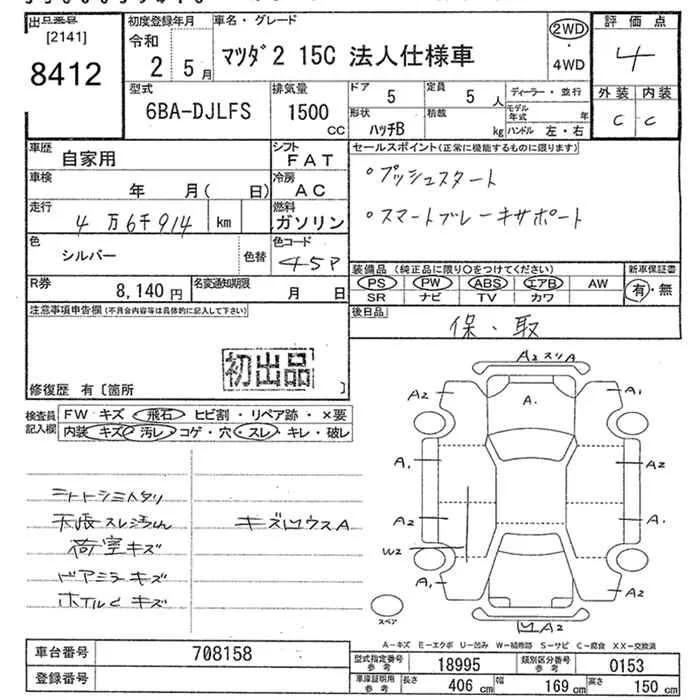 出品番号 初度登録年月 車名・グレード 2WD 評価点
[2141] 令和 マツダ2 15C 法人仕様車 4
8412 2 5月 ・4WD
型式 排気量 ドア 5 定員 5人 ディーラー・並行 外装 内装
6BA-DJLFS 1500 CC 形状 ハッチB 積載 kg モデル年式 年 C C
ハンドル 左・右
車歴 自家用 シフト FAT セールスポイント(正常に機能するものに限ります)
車検 年 月( 日) 冷房 AC ・プッシュスタート
走行 4万6千914 km 燃料 ガソリン ・スマートブレーキサポート
色 シルバー 色替 色コード 45P
装備品 (純正品に限り○をつけてください) 新車保証書
PS PW ABS エアB AW 有・無
SR ナビ TV カワ
R券 8,140円 名変通知期限 月 日
後日品 保・取
注意事項申告欄(不具合内容等は具体的に記入して下さい)
初出品
修復歴 有〔箇所
検査員記入欄 FW キズ 飛石 ヒビ割・リペア跡・×要
内装 キズ 汚レ・コゲ・穴・スレ・キレ・破レ
A2 スリA
A2 A. A1
A. A2
A2 A.
W2
A. A2
凹A2
スペア
天張スレ汚れ キズ凹ウスA
荷室キズ
ドアミラーキズ
キズ
A-キズ E-エクボ U-凹み W-補修跡 S-サビ C-腐食 XX-交換済
車台番号 708158 型式指定番号 参考 18995 類別区分番号 参考 0153
登録番号 車庫証明用 参考 長さ 406 cm 幅 169 cm 高さ 150 cm